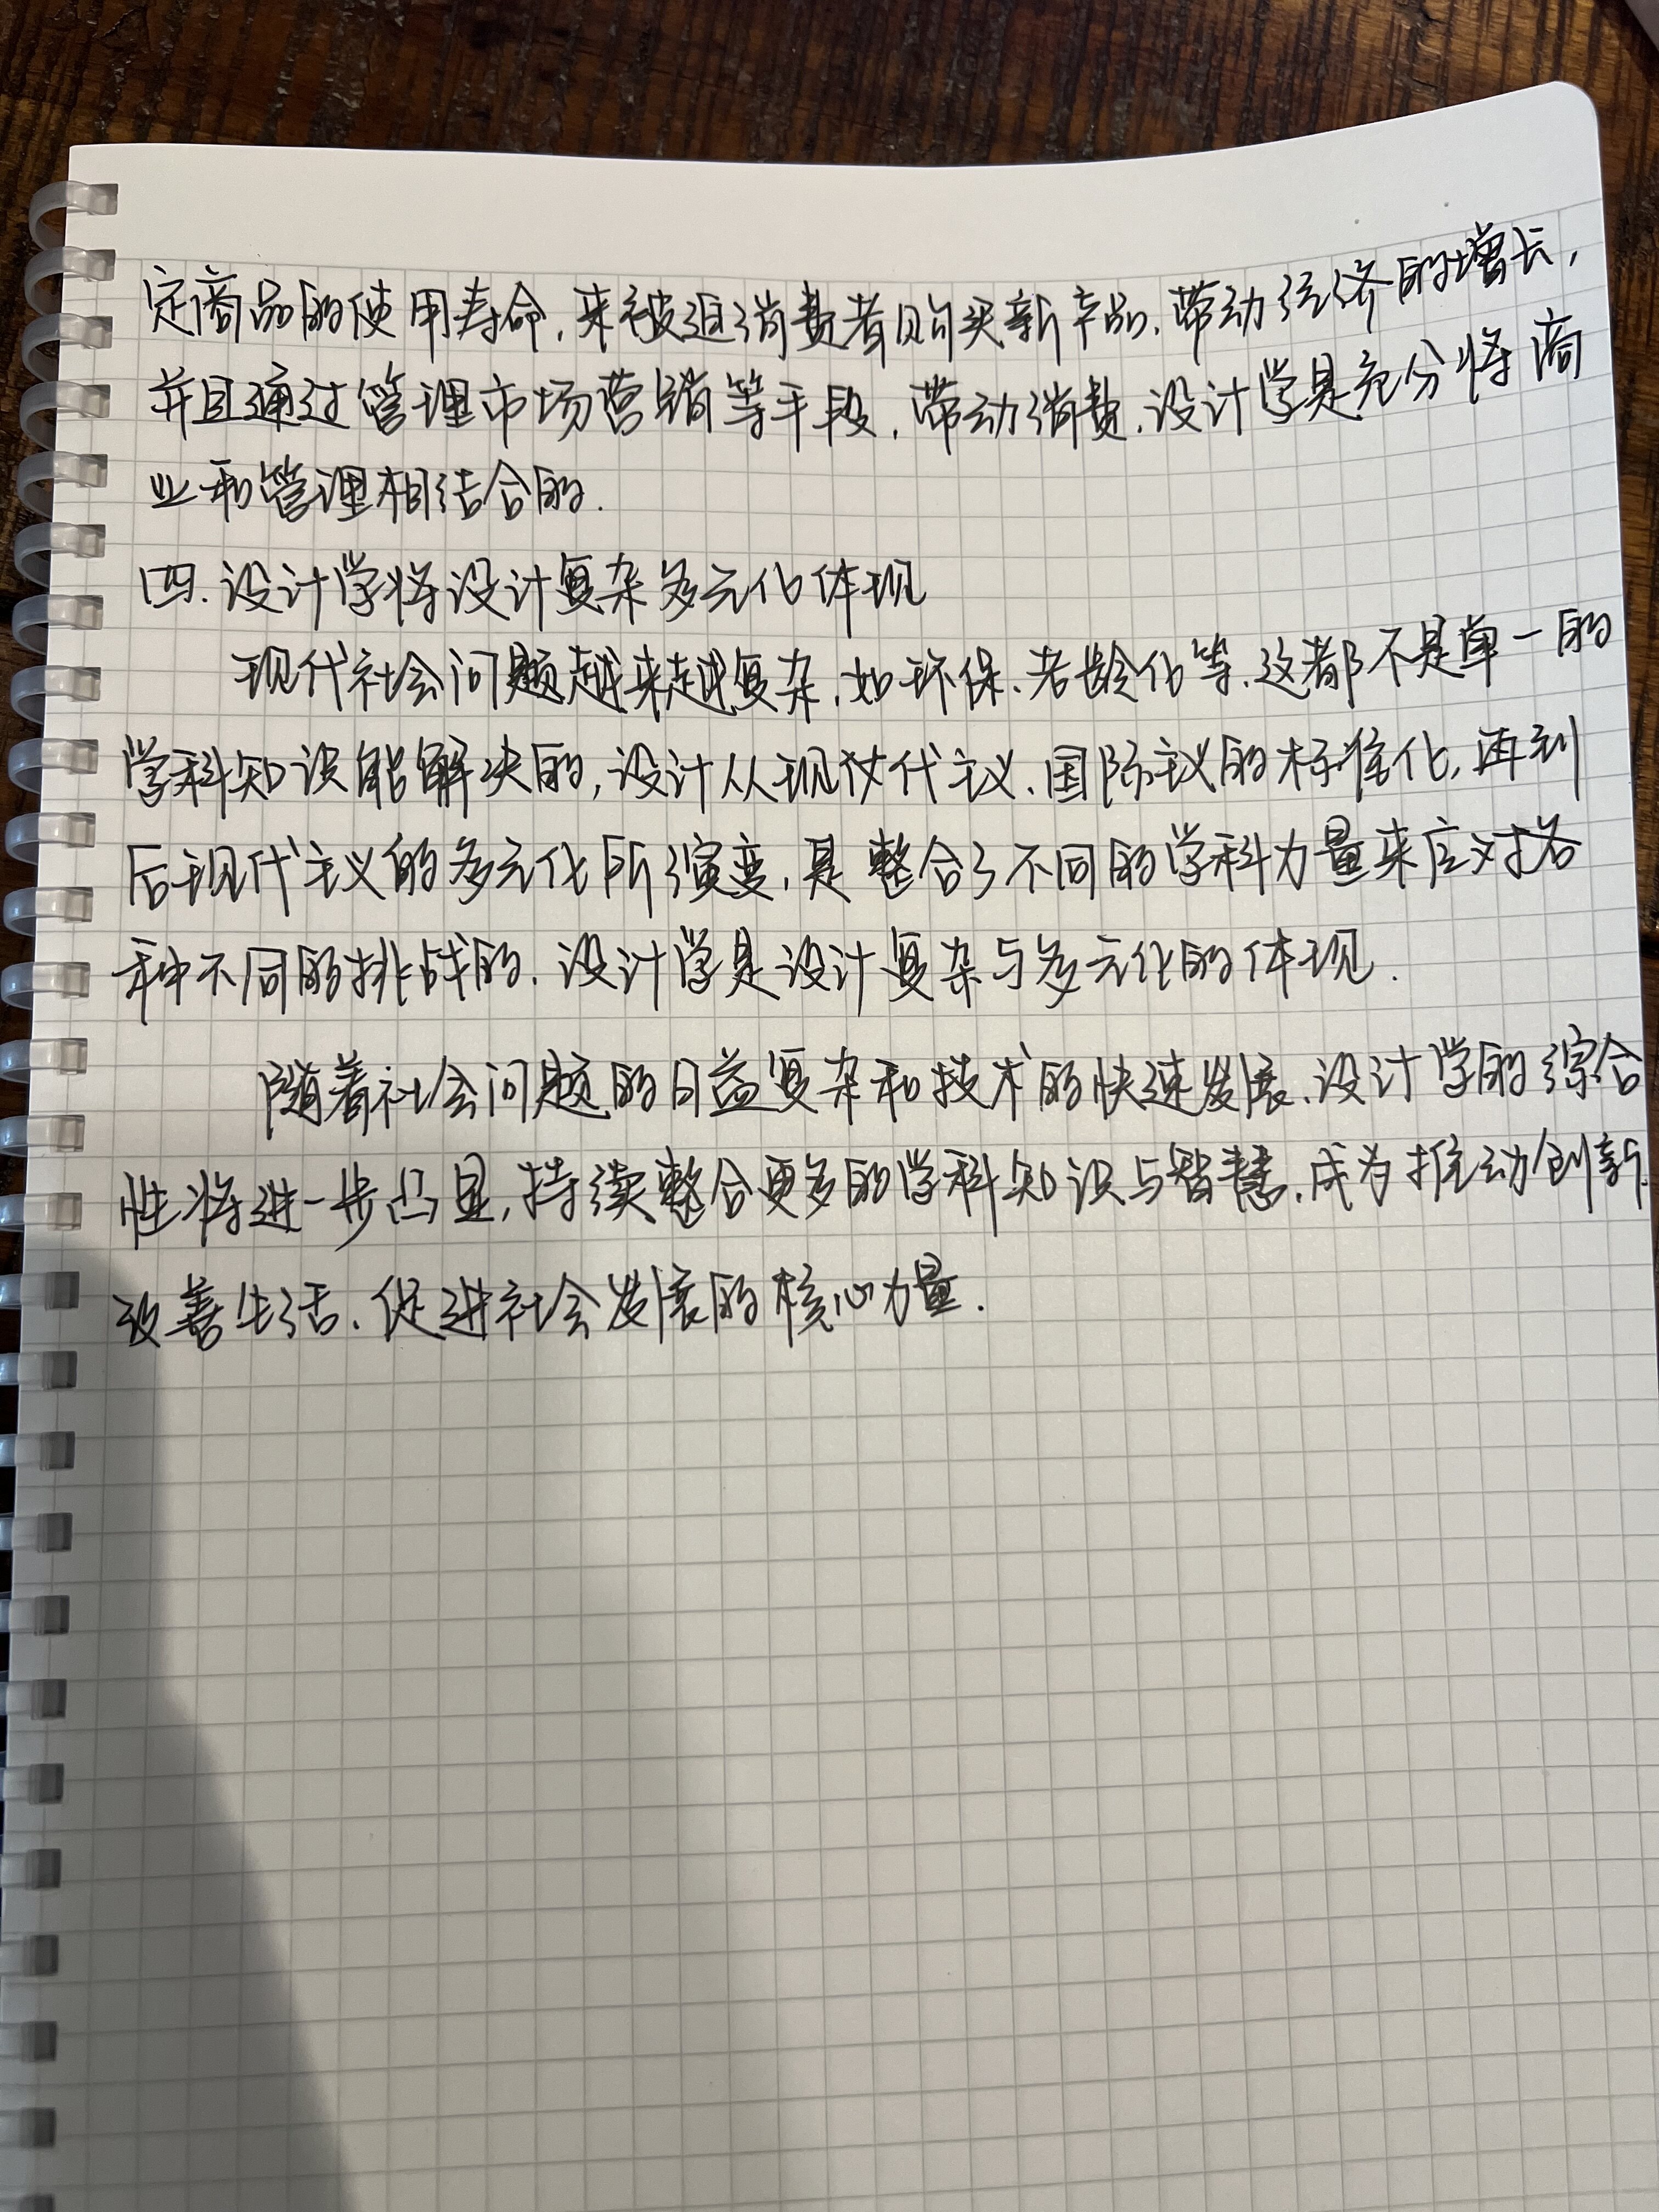 定商品的使用寿命，来被迫消费者购买新产品，带动经济的增长，
并且通过管理市场营销等手段，带动消费，设计学是充分将商
业和管理相结合的．
四．设计学将设计复杂多元化体现
现代社会问题越来越复杂，如环保、老龄化等，这都不是单一的
学科知识能解决的，设计从现代主义、国际主义的标准化，再到
后现代主义的多元化所演变，是整合了不同的学科力量来应对各
种不同的挑战的．设计学是设计复杂与多元化的体现．
随着社会问题的日益复杂和技术的快速发展，设计学的综合
性将进一步凸显，持续整合更多的学科知识与智慧，成为推动创新、
改善生活、促进社会发展的核心力量．